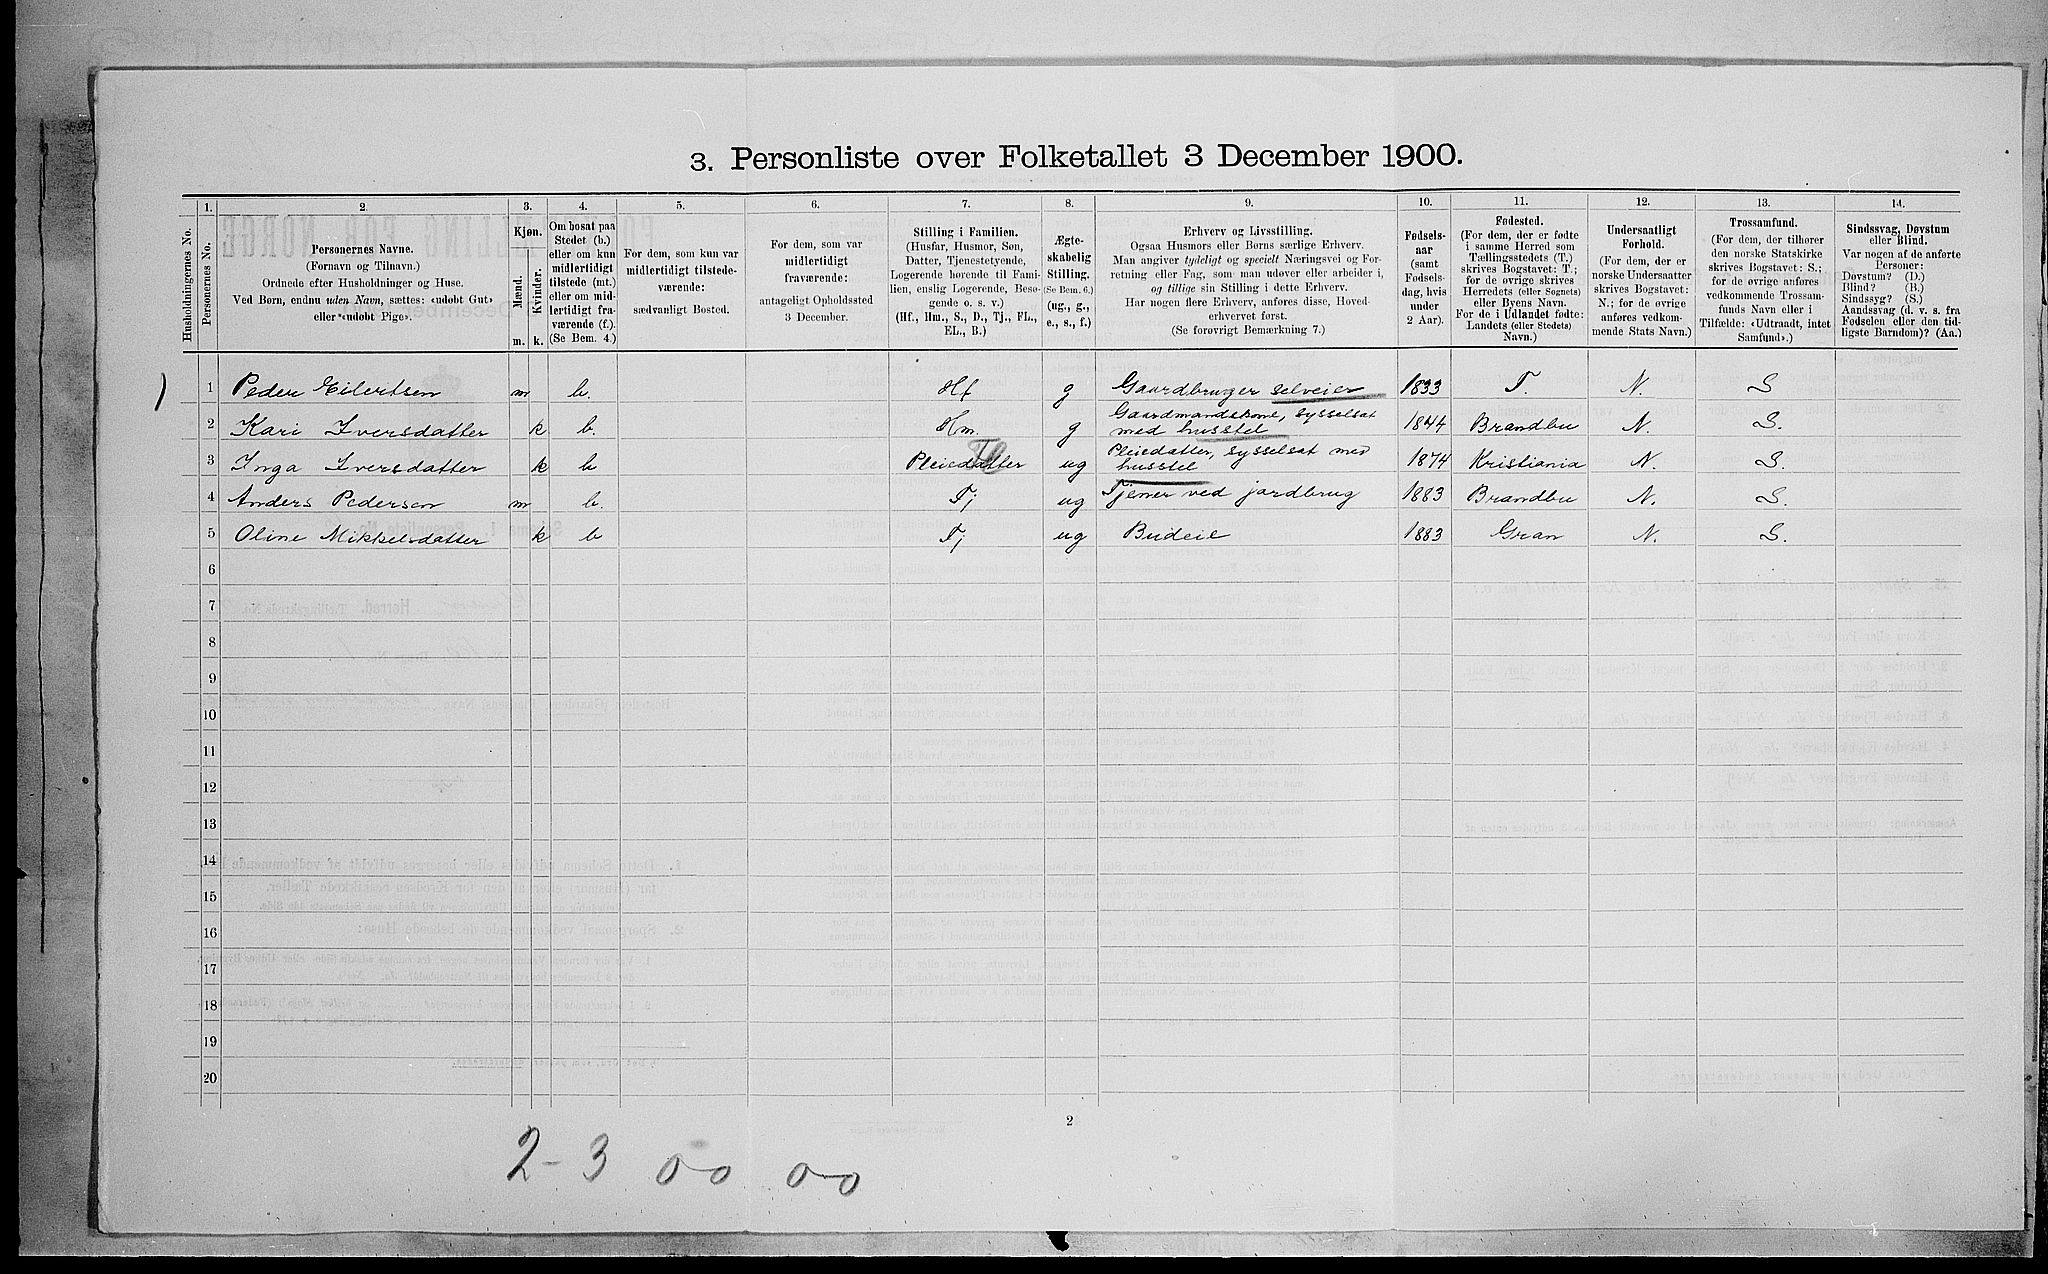 3. Personliste over Folketallet 3 December 1900.
1. 2. 3. 4. 5. 6. 7. 8. 9. 10. 11. 12. 13. 14.
Husholdningernes No.
Personernes No.
Personernes Navne.
(Fornavn og Tilnavn.)
Ordnede efter Husholdninger og Huse.
Ved Børn, endnu uden Navn, sættes: «udøbt Gut»
eller «udøbt Pige».
Kjøn.
Mænd.
Kvinder.
m. k.
Om bosat paa
Stedet (b.)
eller om kun
midlertidigt
tilstede (mt.)
eller om mid-
lertidigt fra-
værende (f.).
(Se Bem. 4.)
For dem, som kun var
midlertidigt tilstede-
værende:
sædvanligt Bosted.
For dem, som var
midlertidigt
fraværende:
antageligt Opholdssted
3 December.
Stilling i Familien.
(Husfar, Husmor, Søn,
Datter, Tjenestetyende,
Logerende hørende til Fami-
lien, enslig Logerende, Besø-
gende o. s. v.)
(Hf., Hm., S., D., Tj., FL.,
EL., B.)
Ægte-
skabelig
Stilling.
(Se Bem. 6.)
(ug., g.,
e., s., f.)
Erhverv og Livsstilling.
Ogsaa Husmors eller Børns særlige Erhverv.
Man angiver tydeligt og specielt Næringsvei og For-
retning eller Fag, som man udøver eller arbeider i,
og tillige sin Stilling i dette Erhverv.
Har nogen flere Erhverv, anføres disse, Hoved-
erhvervet først.
(Se forøvrigt Bemærkning 7.)
Fødsels-
aar
(samt
Fødsels-
dag, hvis
under
2 Aar).
Fødested.
(For dem, der er fødte
i samme Herred som
Tællingsstedets (T.)
skrives Bogstavet: T.;
for de øvrige skrives
Herredets (eller Sognets)
eller Byens Navn.
For de i Udlandet fødte:
Landets (eller Stedets)
Navn.)
Undersaatligt
Forhold.
(For dem, der er
norske Undersaatter
skrives Bogstavet:
N.; for de øvrige
anføres vedkom-
mende Stats Navn.)
Trossamfund.
(For dem, der tilhører
den norske Statskirke
skrives Bogstavet: S.;
for de øvrige anføres
vedkommende Trossam-
funds Navn eller i
Tilfælde: «Udtraadt, intet
Samfund».)
Sindssvag, Døvstum
eller Blind.
Var nogen af de anførte
Personer:
Døvstum? (D.)
Blind? (B.)
Sindssyg? (S.)
Aandssvag (d. v. s. fra
Fødselen eller den tid-
ligste Barndom)? (Aa.)
1 Peder Eilertsen m b. Hf g Gaardbruger selveier 1833 T. N. S
2 Kari Iversdatter k b. Hm. g Gaardmandskone, sysselsat
med husstel 1844 Brandbu N. S.
3 Inga Iversdatter k b Pleiedatter ug Pleiedatter, sysselsat med
husstel 1874 Kristiania N. S.
4 Anders Pedersen m b. Tj ug Tjener ved jordbrug 1883 Brandbu N. S.
5 Oline Mikkelsdatter k b Tj ug Budeie 1883 Gran N. S.
6
7
8
9
10
11
12
13
14
15
16
17
18
19
20
2
2-3 0-0 0-0